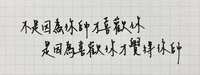 不是因為你帥才喜歡你
是因為喜歡你才覺得你帥